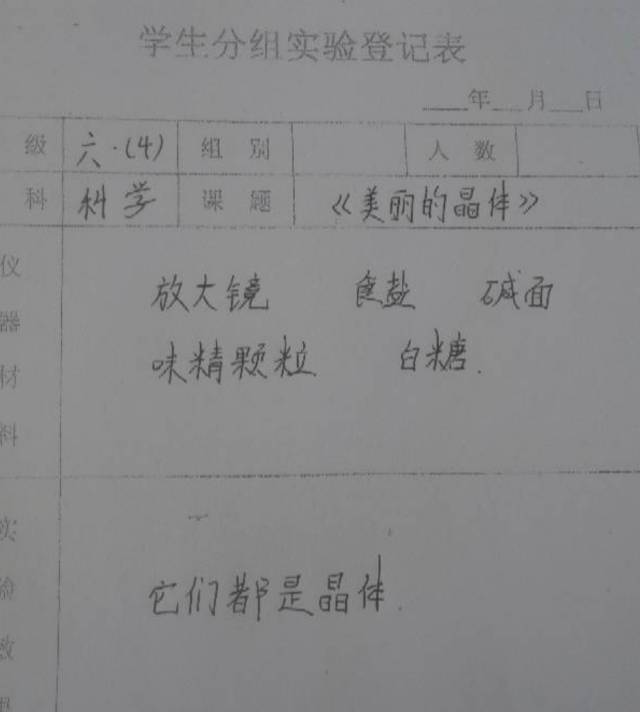 学生分组实验登记表
___年___月___日
级 六·(4) 组别 人数
科 科学 课题 《美丽的晶体》
仪器材料
放大镜 食盐 碱面
味精颗粒 白糖.
实验数
它们都是晶体.